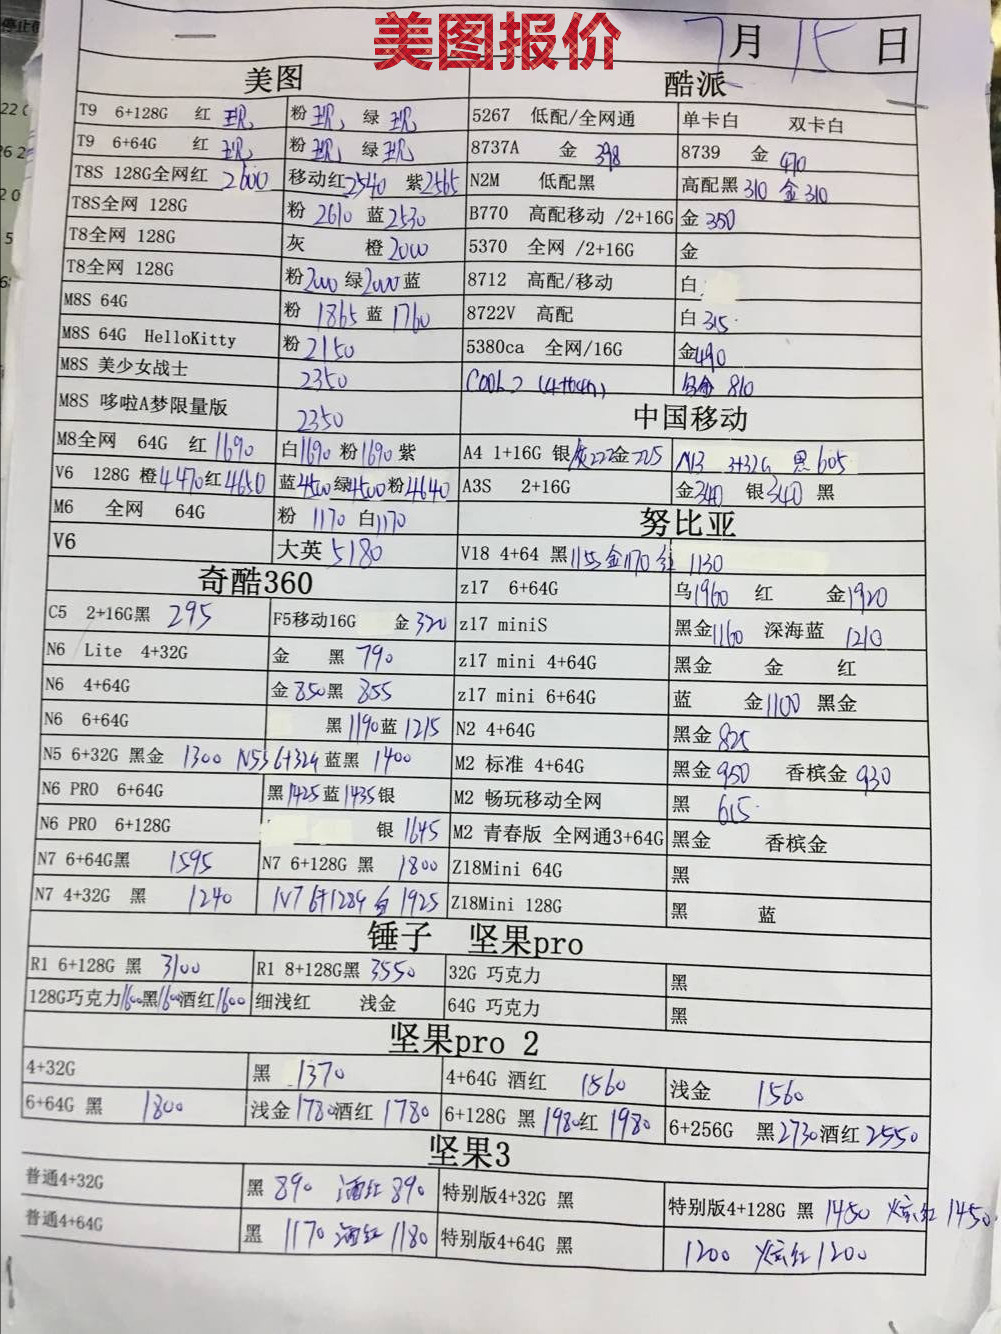 美图报价
7月15日
美图 酷派
T9 6+128G 红 现 粉 现 绿 现 5267 低配/全网通 单卡白 双卡白
T9 6+64G 红 现 粉 现 绿 现 8737A 金 398 8739 金 470
T8S 128G全网红 2600 移动红2540 紫2565 N2M 低配黑 高配黑310 金310
T8S全网 128G 粉 2610 蓝2530 B770 高配移动 /2+16G 金 350
T8全网 128G 灰 橙2000 5370 全网 /2+16G 金
T8全网 128G 粉2000 绿2000蓝 8712 高配/移动 白
M8S 64G 粉 1865 蓝 1760 8722V 高配 白 315
M8S 64G HelloKitty 粉 2150 5380ca 全网/16G 金490
M8S 美少女战士 2350 COOL 810
M8S 哆啦A梦限量版 2350 中国移动
M8全网 64G 红 1690 白1690 粉1690 紫 A4 1+16G 银灰222金225 N13 3+32G 黑 605
V6 128G 橙4470红4650 蓝4500绿4500粉4640 A3S 2+16G 金340 银340 黑
M6 全网 64G 粉 1170 白1170 努比亚
V6 大英 5180 V18 4+64 黑1155金1170 红 1130
奇酷360 z17 6+64G 乌1960 红 金1920
C5 2+16G黑 295 F5移动16G 金 320 z17 miniS 黑金1160 深海蓝 1210
N6 Lite 4+32G 金 黑 790 z17 mini 4+64G 黑金 金 红
N6 4+64G 金 850黑 855 z17 mini 6+64G 蓝 金1100 黑金
N6 6+64G 黑1190蓝1215 N2 4+64G 黑金 825
N5 6+32G 黑金 1300 N5S 6+32G 蓝黑 1400 M2 标准 4+64G 黑金 950 香槟金 930
N6 PRO 6+64G 黑1425蓝1435银 M2 畅玩移动全网 黑 615
N6 PRO 6+128G 银 1645 M2 青春版 全网通3+64G 黑金 香槟金
N7 6+64G黑 1595 N7 6+128G 黑 1800 Z18Mini 64G 黑
N7 4+32G 黑 1240 N7 6+128G 白 1925 Z18Mini 128G 黑 蓝
锤子 坚果pro
R1 6+128G 黑 3100 R1 8+128G黑 3550 32G 巧克力 黑
128G巧克力1600黑1600酒红1600 细浅红 浅金 64G 巧克力 黑
坚果pro 2
4+32G 黑 1370 4+64G 酒红 1560 浅金 1560
6+64G 黑 1800 浅金1780酒红 1780 6+128G 黑 1980红 1980 6+256G 黑2730酒红2550
坚果3
普通4+32G 黑 890 酒红 890 特别版4+32G 黑 特别版4+128G 黑 1450 炫红 1450
普通4+64G 黑 1170 酒红 1180 特别版4+64G 黑 1200 炫红1200